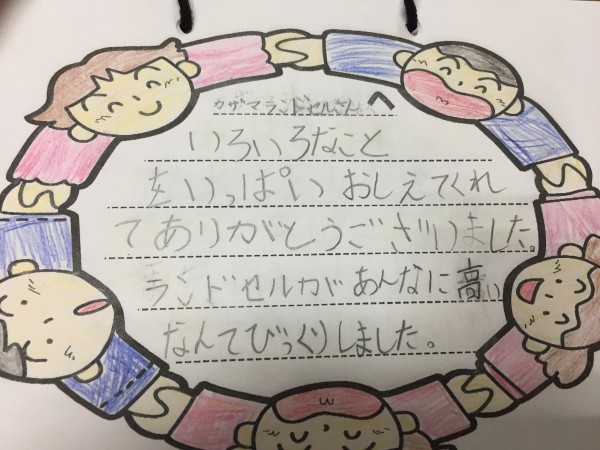 カザマランドセルさんへ
いろいろなこと
をいっぱいおしえてくれ
てありがとうございました。
ランドセルがあんなに高い
なんてびっくりしました。